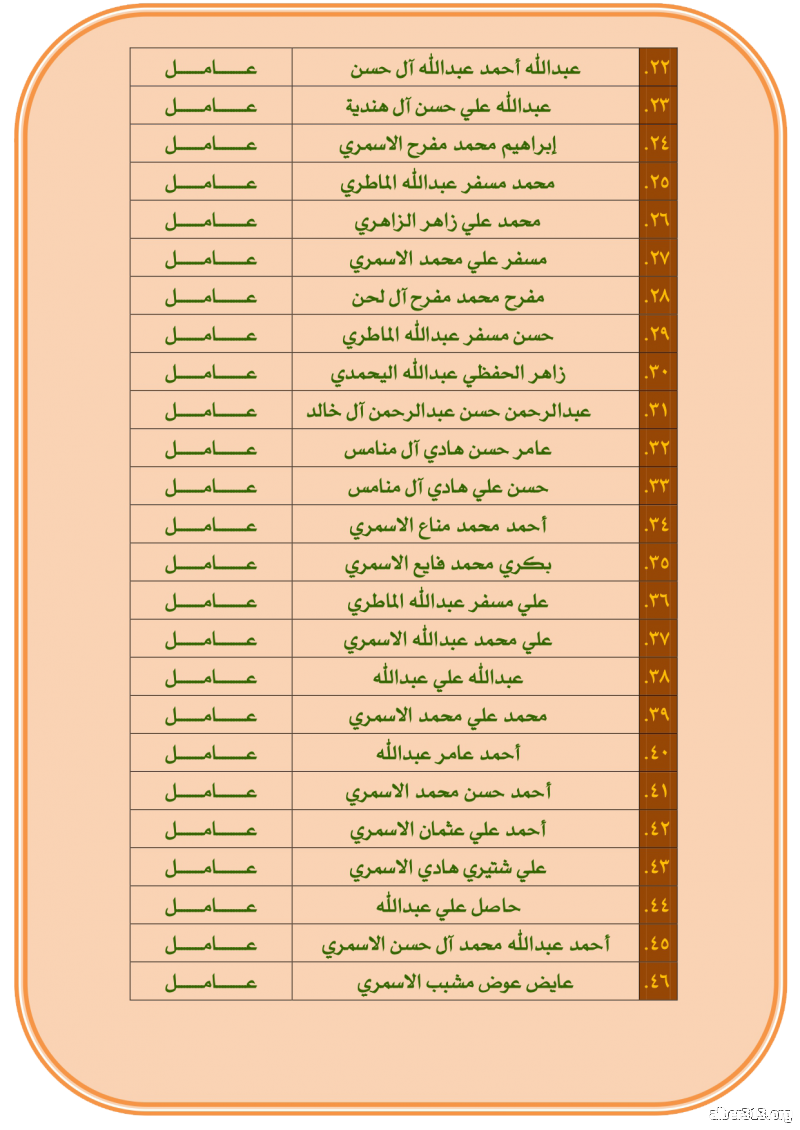 ٢٢. عبدالله أحمد عبدالله آل حسن عـــــامـــــل
٢٣. عبدالله علي حسن آل هندية عـــــامـــــل
٢٤. إبراهيم محمد مفرح الاسمري عـــــامـــــل
٢٥. محمد مسفر عبدالله الماطري عـــــامـــــل
٢٦. محمد علي زاهر الزاهري عـــــامـــــل
٢٧. مسفر علي محمد الاسمري عـــــامـــــل
٢٨. مفرح محمد مفرح آل لحن عـــــامـــــل
٢٩. حسن مسفر عبدالله الماطري عـــــامـــــل
٣٠. زاهر الحفظي عبدالله اليحمدي عـــــامـــــل
٣١. عبدالرحمن حسن عبدالرحمن آل خالد عـــــامـــــل
٣٢. عامر حسن هادي آل منامس عـــــامـــــل
٣٣. حسن علي هادي آل منامس عـــــامـــــل
٣٤. أحمد محمد مناع الاسمري عـــــامـــــل
٣٥. بكري محمد فايع الاسمري عـــــامـــــل
٣٦. علي مسفر عبدالله الماطري عـــــامـــــل
٣٧. علي محمد عبدالله الاسمري عـــــامـــــل
٣٨. عبدالله علي عبدالله عـــــامـــــل
٣٩. محمد علي محمد الاسمري عـــــامـــــل
٤٠. أحمد عامر عبدالله عـــــامـــــل
٤١. أحمد حسن محمد الاسمري عـــــامـــــل
٤٢. أحمد علي عثمان الاسمري عـــــامـــــل
٤٣. علي شتيري هادي الاسمري عـــــامـــــل
٤٤. حاصل علي عبدالله عـــــامـــــل
٤٥. أحمد عبدالله محمد آل حسن الاسمري عـــــامـــــل
٤٦. عايض عوض مشبب الاسمري عـــــامـــــل